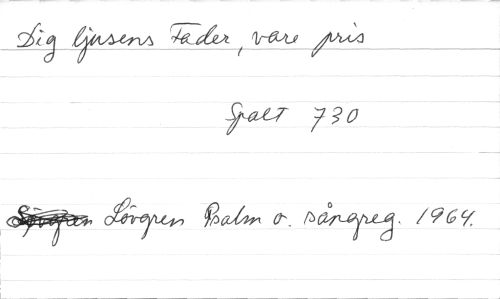 Dig ljusens Fader, vare pris
Spalt 730
Lövgren Psalm o. sångreg. 1964.